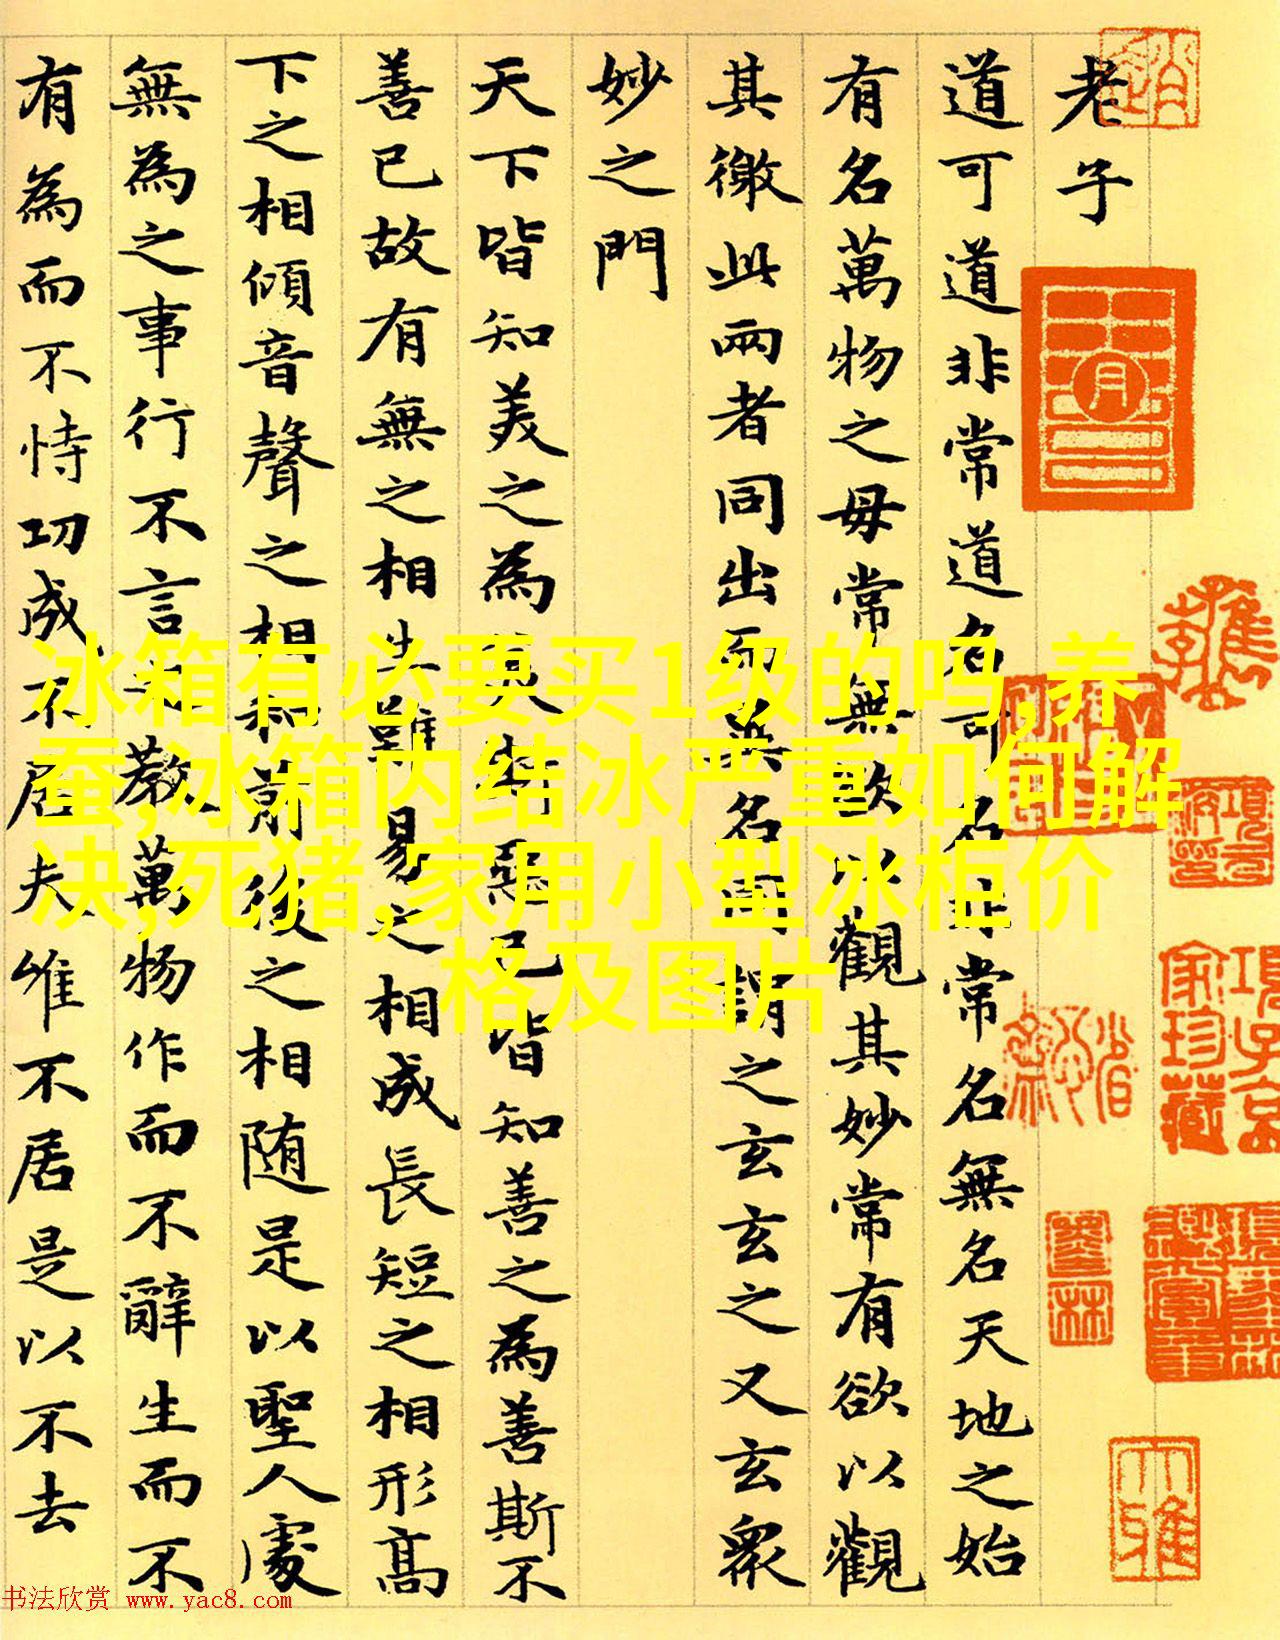 老子
道可道非常道名可名非常名無名天地之始
有名萬物之母常無欲以觀其妙常有欲以觀
其徼此兩者同出而異名同謂之玄玄之又玄眾
妙之門
天下皆知美之為美斯惡已皆知善之為善斯不
善已故有無之相生難易之相成長短之相形高
下之相傾音聲之相和前後之相随是以聖人處
無為之事行不言之教萬物作而不辭生而不
有為而不恃功成不居夫惟不居是以不去
冰箱有必要买1级的吗,养
蚕,冰箱内结冰严重如何解
决,死猪,家用小型冰柜价
格及图片
书法欣赏 www.yac8.com